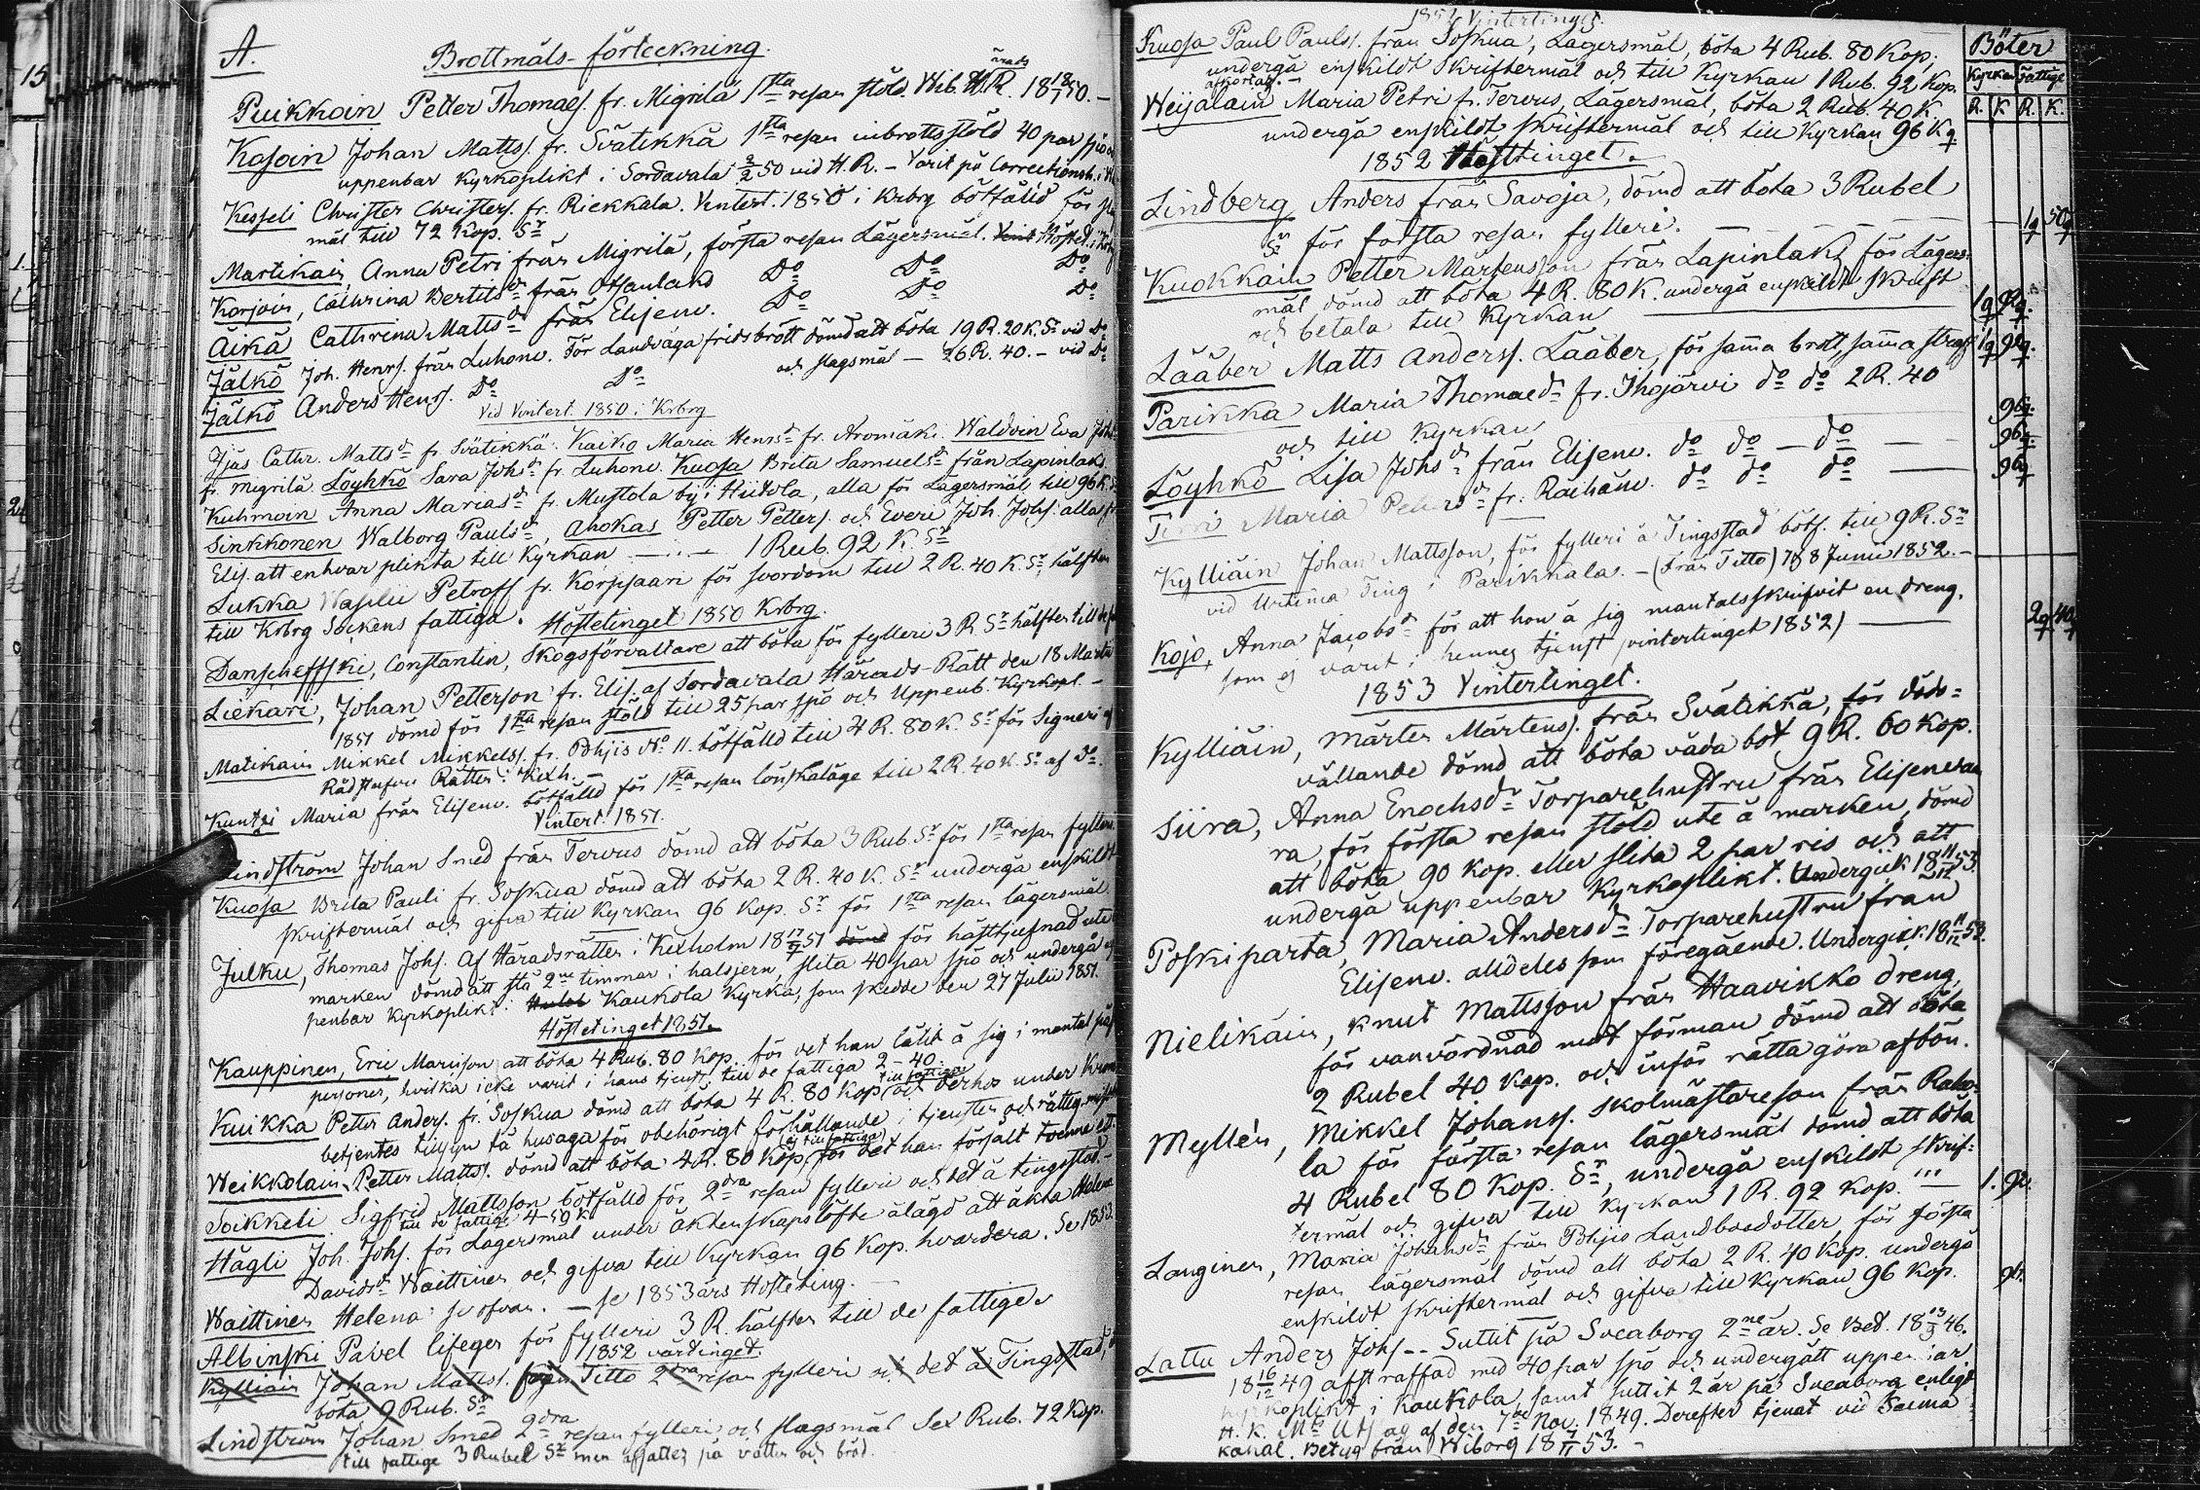 A.
Brottmåls-förteckning.
Puikkoin Petter Thomass. fr. Migrilä 1sta resan stöld. Wib. H.R. 18 18/1 50. -
Kosoin Johan Matts. fr. Svätikkä 1sta resan inbrottsstöld 40 par spö
uppenbar Kyrkoplikt i Sordavala 3/2 50 vid H.R. - Varit på Correctionsh. i
Kesseli Christer Christers. fr. Riekkala. Vintert. 1850 i Krbrg bötfälld för
mål till 72 Kop. Sr
Martikain, Anna Petri från Migrilä, första resan Lägersmål. Höstet.
Korjoin, Cathrina Bertilsdr från Do Do Do
Äikä Cathrina Mattsdr från Elisenv. Do Do Do
Jälkö Joh. Henrs. från Luhonv. För Landsväga fridsbrott dömd att böta 19 R. 20 K. Sr vid Do
Jälkö Anders Henrs. Do Do och slagsmål - 26 R. 40. - vid Do
Vid Vintert. 1850 i Krbrg
Ijäs Cathr. Mattsdr fr Svätikkä. Kaiko Maria Henrsdr fr. Aromäki. Waldoin Eva
fr. Migrilä. Löyhkö Sara Johsdr fr. Luhonv. Kuosa Brita Samuelsdr från Lapinlaks
Kuhmoin Anna Mariasdr fr. Mustola by i Hiitola, alla för Lägersmål till 96 K.
Sinkkonen Walborg Paulsdr, Ahokas Petter Petters. och Everi Joh. Johs. alla
Elis. att enhvar plikta till Kyrkan - 1 Rub. 92 K. Sr
Lukka Wasilii Petroff fr. Korpsaari för svordom till 2 R. 40 K. Sr, hälften
till Krbrg Sockens fattiga. Höstetinget 1850 Krbrg.
Danscheffski, Constantin, Skogsförvaltare att böta för fylleri 3 R Sr hälften till
Liekari, Johan Petterson fr. Elis. af Sordavala Härads-Rätt den 18 Martii
1851 dömd för 1sta resan stöld till 25 par spö och Uppenb. Kyrkopl. -
Matikain Mikkel Mikkelss. fr. Pohjis No 11. bötfälld till 4 R. 80 K. Sr för Signeri af
Rådstufvu Rätten i Kexh. -
Maria från Elisenv. bötfälld för 1sta resan lönskaläge till 2 R. 40 K. Sr af Do.
Vintert. 1851.
Lindström Johan Smed från Tervus dömd att böta 3 Rub. Sr för 1sta resan fylleri
Kuosa Brita Pauli fr. Soskua dömd att böta 2 R. 40 K. Sr undergå enskildt
skriftermål och gifva till Kyrkan 96 Kop. Sr för 1sta resan lägersmål.
Julku, Thomas Johs. Af Häradsrätten i Kexholm 18 17/5 51 dömd för hästtjufnad ute
marken dömd att stå 2ne timmar i halsjern, slita 40 par spö och undergå
penbar kyrkoplikt i Kaukola Kyrka, som skedde den 27 Julii 1851.
Höstetinget 1851.
Kauppinen, Eric Marisson, att böta 4 Rub. 80 Kop. för det han låtit å sig i mantal
personer, hvilka icke varit i hans tjenst till de fattiga 2-40.
Kuikka Petter Anders. fr. Soskua dömd att böta 4 R. 80 Kop till fattiga och derhos under Krono
betjentes tillsyn få husaga för obehörigt förhållande i tjensten och
Weikkolain, Petter Matts. dömd att böta 4 R. 80 Kop, (ej till fattiga) för det han försålt
Soikkeli Sigfrid Mattsson bötfälld för 2dra resan fylleri och det å tingsstad. -
till de fattige 4-50 K.
Hägli Joh. Johs. för Lägersmål under äktenskapslöfte ålagd att äkta Helena
Davidsdr Waittinen och gifva till Kyrkan 96 Kop. hvardera. Se 1853.
Waittinen Helena: se ofvan. - se 1853 års Hösteting.
Albinski Pavel lifeger för fylleri 3 R. hälften till de fattige.
1852 vårtinget.
Kylliäin Johan Matts. från Titto 2dra resan fylleri och det å Tingsstad,
böta 9 Rub. Sr
Lindström Johan Smed 2dra resan fylleri och slagsmål Sex Rub. 72 Kop.
till fattige 3 Rubel Sr men aftjentes på vatten och bröd.
1852 Vintertinget.
Kuosa Paul Pauls. från Soskua, Lägersmål, böta 4 Rub. 80 Kop;
undergå enskildt skriftermål och till Kyrkan 1 Rub. 92 Kop.
Heijalain Maria Petri fr. Tervus, Lägersmål, böta 2 Rub. 40 K
undergå enskildt skriftermål och till Kyrkan 96 K
1852 Hösttinget.
Lindberg Anders från Savoja, dömd att böta 3 Rubel
Sr för första resan fylleri.
Kuokkain Petter Mårtensson från Lapinlaks för Lägers-
mål dömd att böta 4 R. 80 K. undergå enskildt skrift
och betala till Kyrkan
Lääber Matts Anderss. Lääber, för samma brott, samma straff
Parikka Maria Thomaedr fr. Ihojärvi do do 2 R. 40
och till Kyrkan
Löyhkö Lisa Johsdr från Elisenv. do do - do
Maria Petersdr fr. Räihänv. do do do
Kylliäin Johan Mattsson, för fylleri å Tingsstad bötf. till 9 R. Sr
vid Urtima Ting i Parikkala. - (Från Titto) 7&8 Junii 1852. -
Kojo, Anna Jacobsdr för att hon å sig mantalsskrifvit en dreng,
som ej varit i hennes tjenst (vintertinget 1852)
1853 Vintertinget.
Kylliäin, Mårten Mårtenss. från Svätikkä, för döds-
vållande dömd att böta våda bot 9 R. 60 Kop.
Siira, Anna Enochsdr Torparehustru från Elisenvaa
ra, för första resan stöld ute å marken, dömd
att böta 90 Kop. eller slita 2 par ris och att
undergå uppenbar Kyrkoplikt. Undergick 18 11/12 53.
Poskiparta, Maria Andersdr Torparehustru från
Elisenv. alldeles som föregående. Undergick. 18 11/12 53.
Nielikäin, Knut Mattsson från Haavikko dreng,
för vanvördnad mot förman dömd att böta
2 Rubel 40 Kop. och inför rätta göra afbön.
Myllén, Mikkel Johanss. skolmästareson från Raho-
la för första resan lägersmål dömd att böta
4 Rubel 80 Kop. Sr, undergå enskildt skrif-
termål och gifva till Kyrkan 1 R. 92 Kop.
Langinen, Maria Johansdr från Pohjis Landbondotter, för första
resan lägersmål dömd att böta 2 R. 40 Kop. undergå
enskildt skriftermål och gifva till Kyrkan 96 Kop.
Lattu Anders Johs -- Suttit på Sveaborg 2ne år. Se Bet. 18 13/3 46.
18 16/12 49 afstraffad med 40 par spö och undergått uppenbar
kyrkoplikt i Kaukola, samt suttit 2 år på Sveaborg enligt
H. K. Mts Utslag af den 7de Nov. 1849. Derefter tjenat vid Saima
kanal. Betyg från Wiborg 18 7/11 53. -
Böter
Kyrkan Fattige
R. K R. K.
1 50
1 92
1 92
96
96
96
2 40
1. 92.
96.